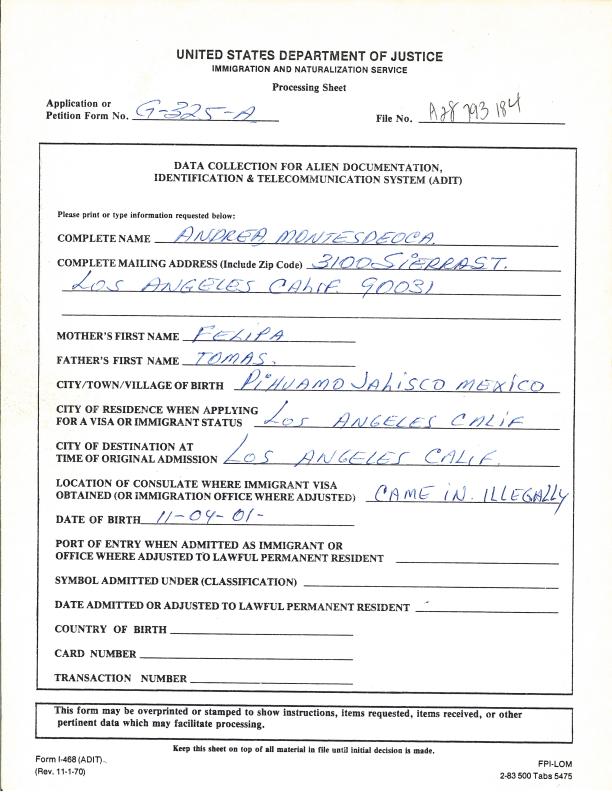 UNITED STATES DEPARTMENT OF JUSTICE
IMMIGRATION AND NATURALIZATION SERVICE
Processing Sheet
Application or
Petition Form No. G-325-A
File No. A28 793 184
DATA COLLECTION FOR ALIEN DOCUMENTATION,
IDENTIFICATION & TELECOMMUNICATION SYSTEM (ADIT)
Please print or type information requested below:
COMPLETE NAME ANDREA MONTESDEOCA.
COMPLETE MAILING ADDRESS (Include Zip Code) 3100 SIERRA ST.
LOS ANGELES CALIF. 90031
MOTHER'S FIRST NAME FELIPA
FATHER'S FIRST NAME TOMAS.
CITY/TOWN/VILLAGE OF BIRTH PiHUAMO JALISCO MEXICO
CITY OF RESIDENCE WHEN APPLYING
FOR A VISA OR IMMIGRANT STATUS LOS ANGELES CALIF
CITY OF DESTINATION AT
TIME OF ORIGINAL ADMISSION LOS ANGELES CALIF.
LOCATION OF CONSULATE WHERE IMMIGRANT VISA
OBTAINED (OR IMMIGRATION OFFICE WHERE ADJUSTED) CAME IN. ILLEGALLY
DATE OF BIRTH 11-04-01-
PORT OF ENTRY WHEN ADMITTED AS IMMIGRANT OR
OFFICE WHERE ADJUSTED TO LAWFUL PERMANENT RESIDENT
SYMBOL ADMITTED UNDER (CLASSIFICATION)
DATE ADMITTED OR ADJUSTED TO LAWFUL PERMANENT RESIDENT
COUNTRY OF BIRTH
CARD NUMBER
TRANSACTION NUMBER
This form may be overprinted or stamped to show instructions, items requested, items received, or other
pertinent data which may facilitate processing.
Keep this sheet on top of all material in file until initial decision is made.
Form I-468 (ADIT)
(Rev. 11-1-70)
FPI-LOM
2-83 500 Tabs 5475